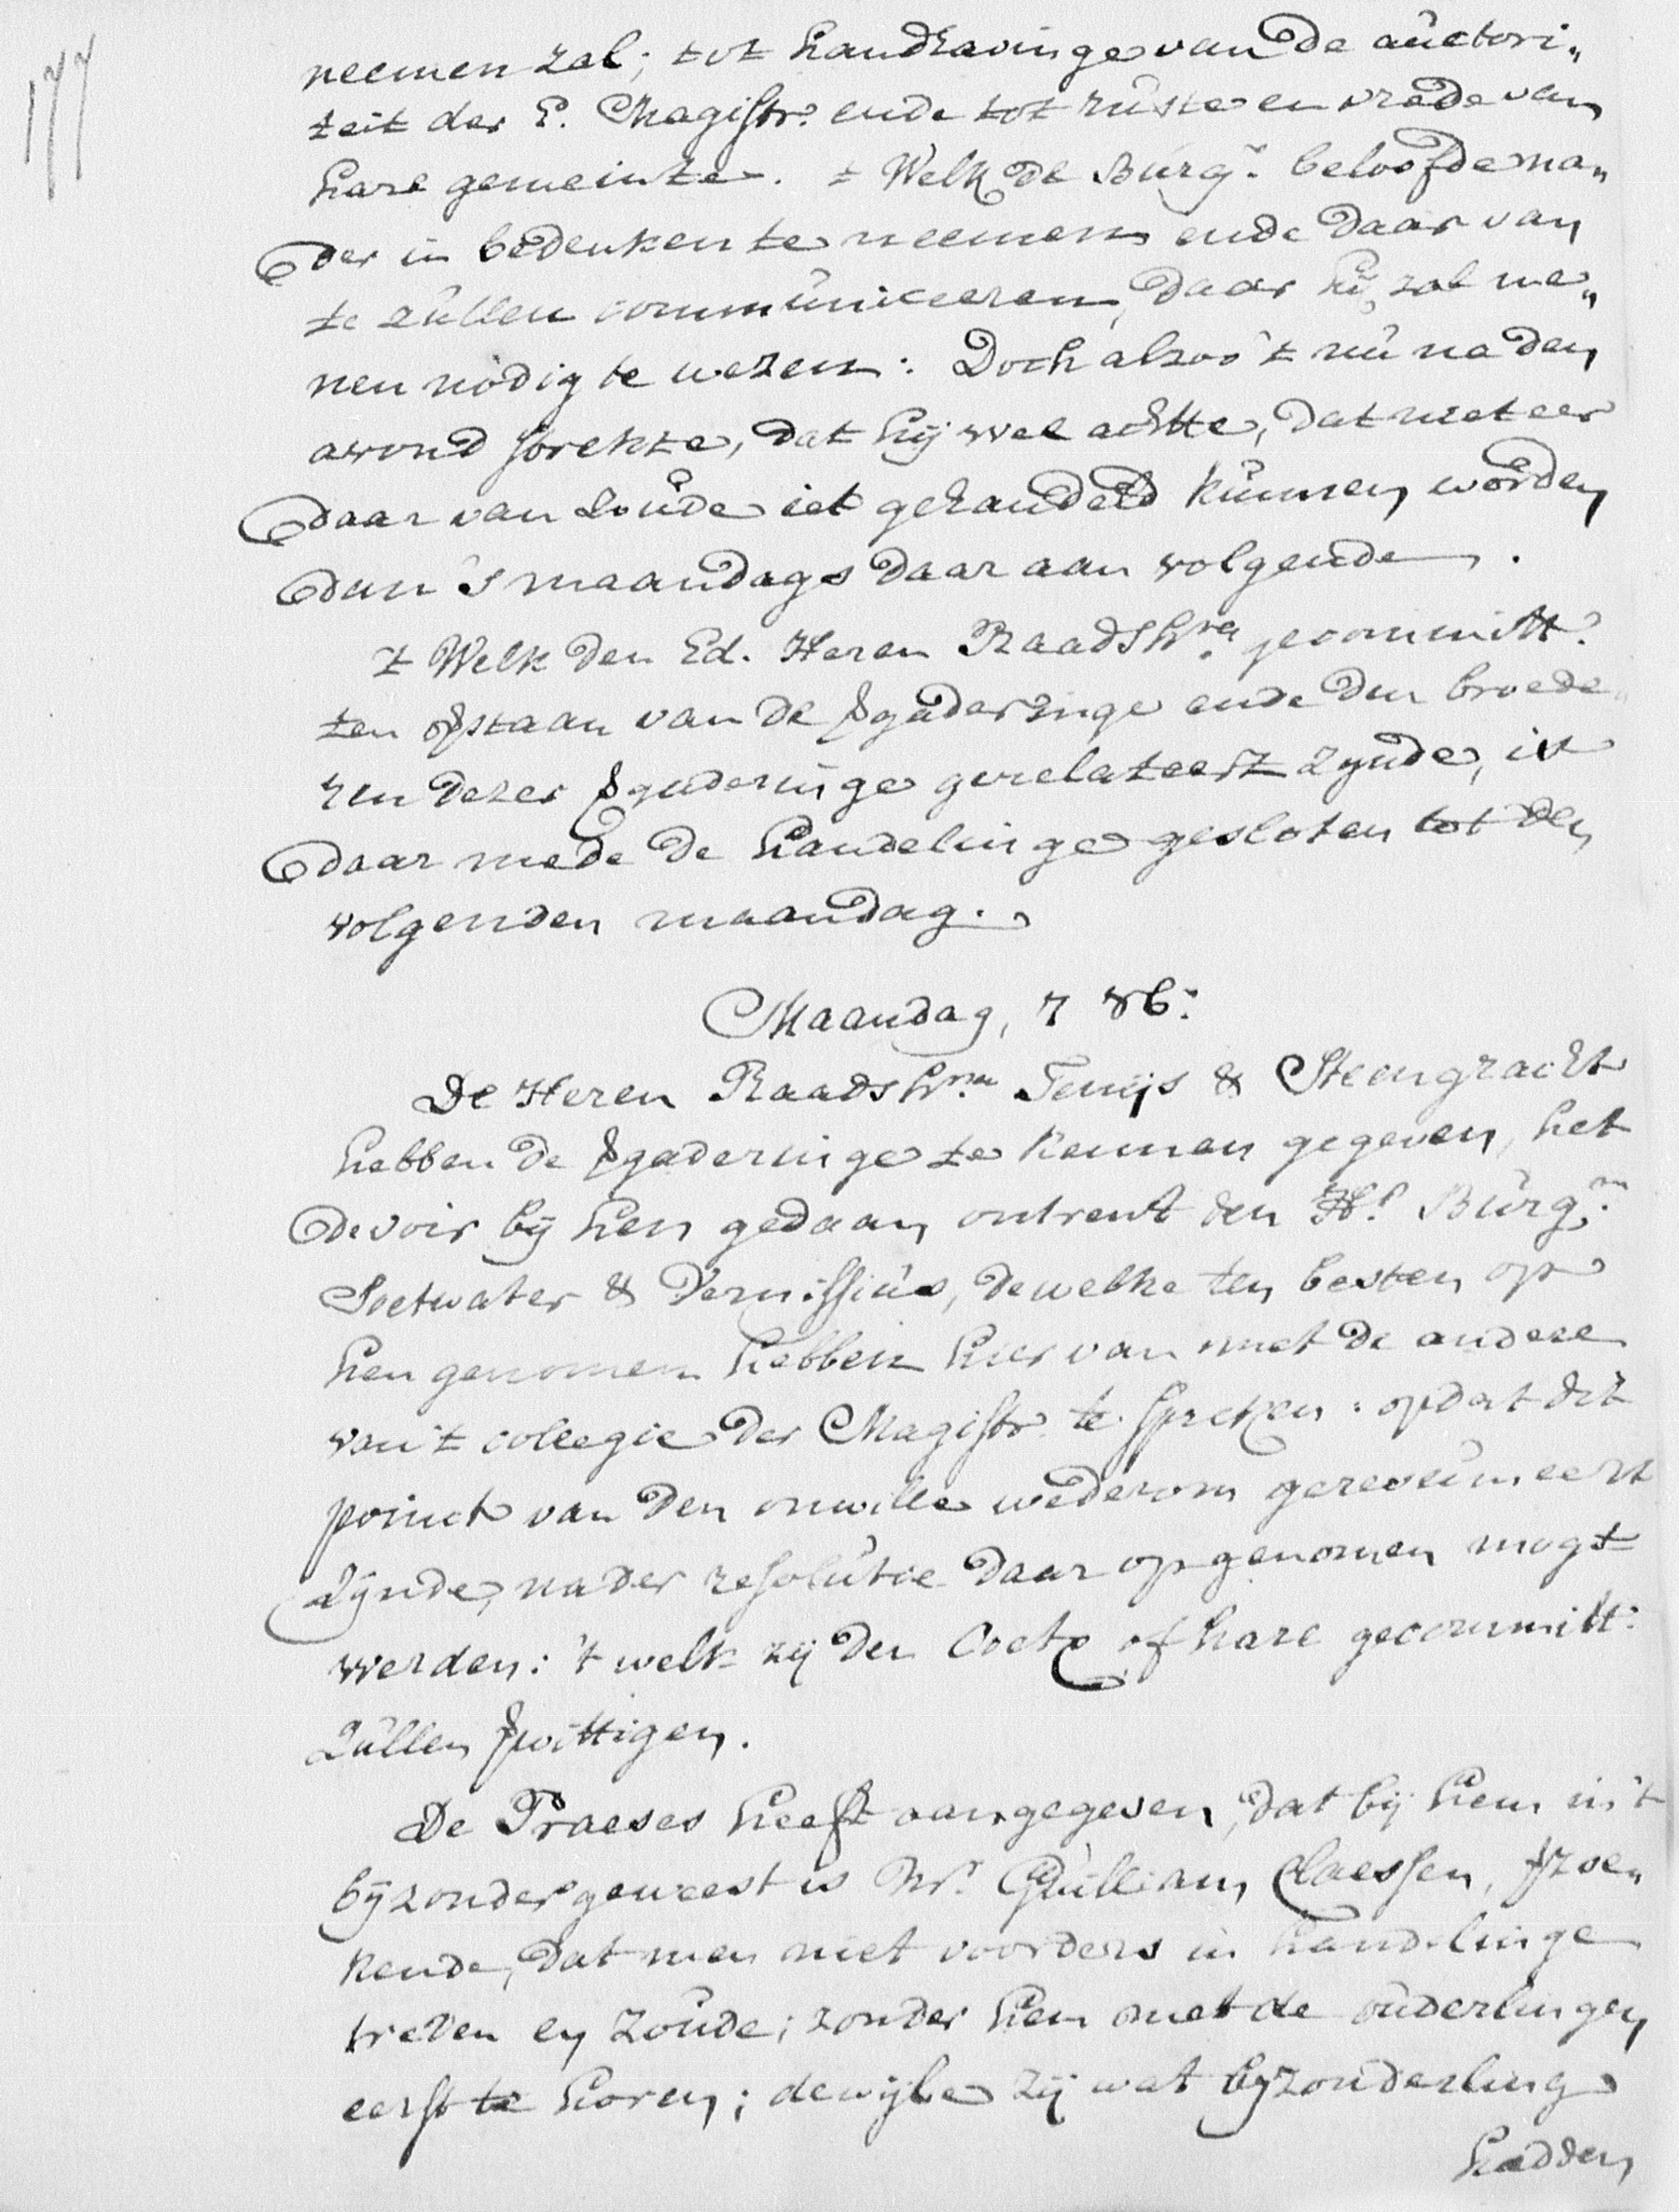 177
neemen zal; tot handhavinge van de auctori„
teit der E. Magistr. ende tot ruste en vrede van
hare gemeinte. t Welk de Burgr. beloofde na„
der in bedenken te neemen ende daar van
te zullen communiceren, daar hij zal me„
nen nodig te wezen: Doch alzoo 't nu na den
avond strekte, dat hij wel achtte, dat niet eer
daar van soude iet gehandeld kunnen worden
dan 's maandags daar aan volgende.
t Welk den Ed. Heren Raadshren. gecommitt.
ten opstaan van de vgaderinge ende den broede„
ren dezer vgaderinge gerelateert zynde, is
daar mede de handelinge gesloten tot den
volgenden maandag.
Maandag, 7 8b:
De Heren Raadshrn. Teuijs & Steengracht
hebben de vgaderinge te kennen gegeven, het
devoir bij hen gedaan ontrent den Hr. Burgrn.
Soetwater & Vernissius, dewelke ten besten op
hen genomen hebben hier van met de andere
van 't collegie der Magistr. te spreken: opdat dit
poinct van den onwille wederom geresumeert
zijnde, nader resolutie daar op genomen mogt
werden: 't welk zij den Coetq of hare gecommitt:
zullen vwittigen.
De Praeses heeft aangegeven, dat bij hem in 't
bijzonder geweest is Mr. Guilliam Claessen, vzoe„
kende, dat men niet voorders in handelinge
treden en zoude; zonder hem met de ouderlingen
eerst te horen; dewijle zij wat byzonderling
hadden